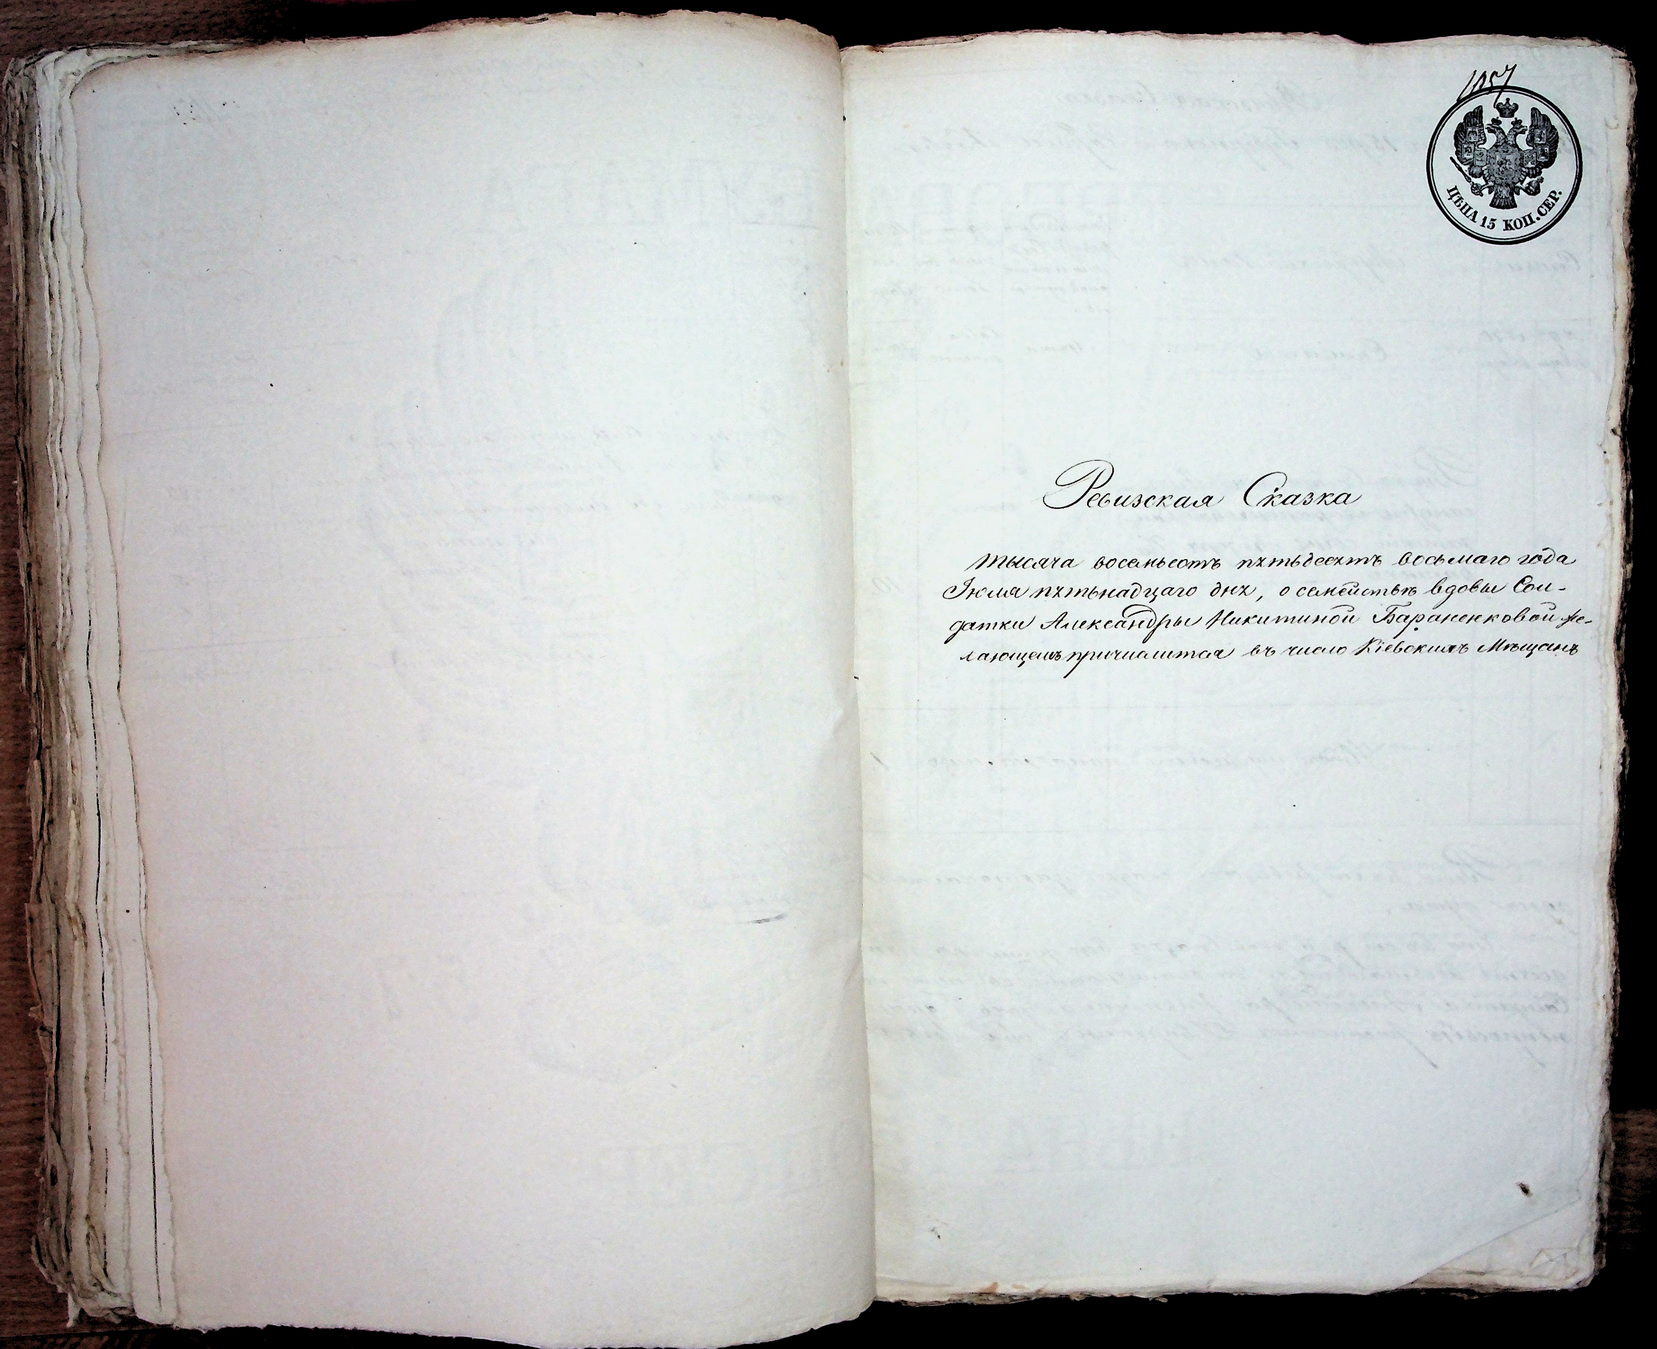 1057
ЦѢНА 15 КОП. СЕР.
Ревизская Сказка
тысяча восемьсотъ пятьдесятъ восьмаго года
Іюля пятьнадцаго дня, о семействѣ вдовы Сол-
датки Александры Никитиной Бараненковой же-
лающемъ причислится въ число Кіевскихъ Мѣщанъ